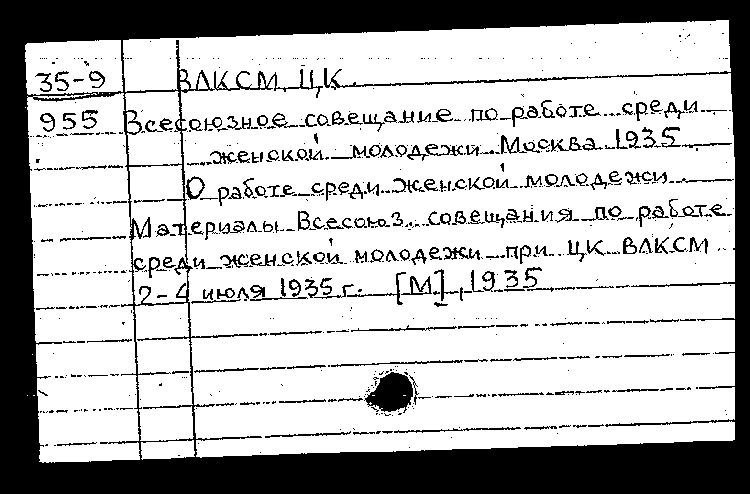 35-9 ВЛКСМ. ЦК.
955 Всесоюзное совещание по работе среди
женской молодежи. Москва 1935
О работе среди женской молодежи.
Материалы Всесоюз. совещания по работе
среди женской молодежи при ЦК ВЛКСМ
2-4 июля 1935 г. [М], 1935